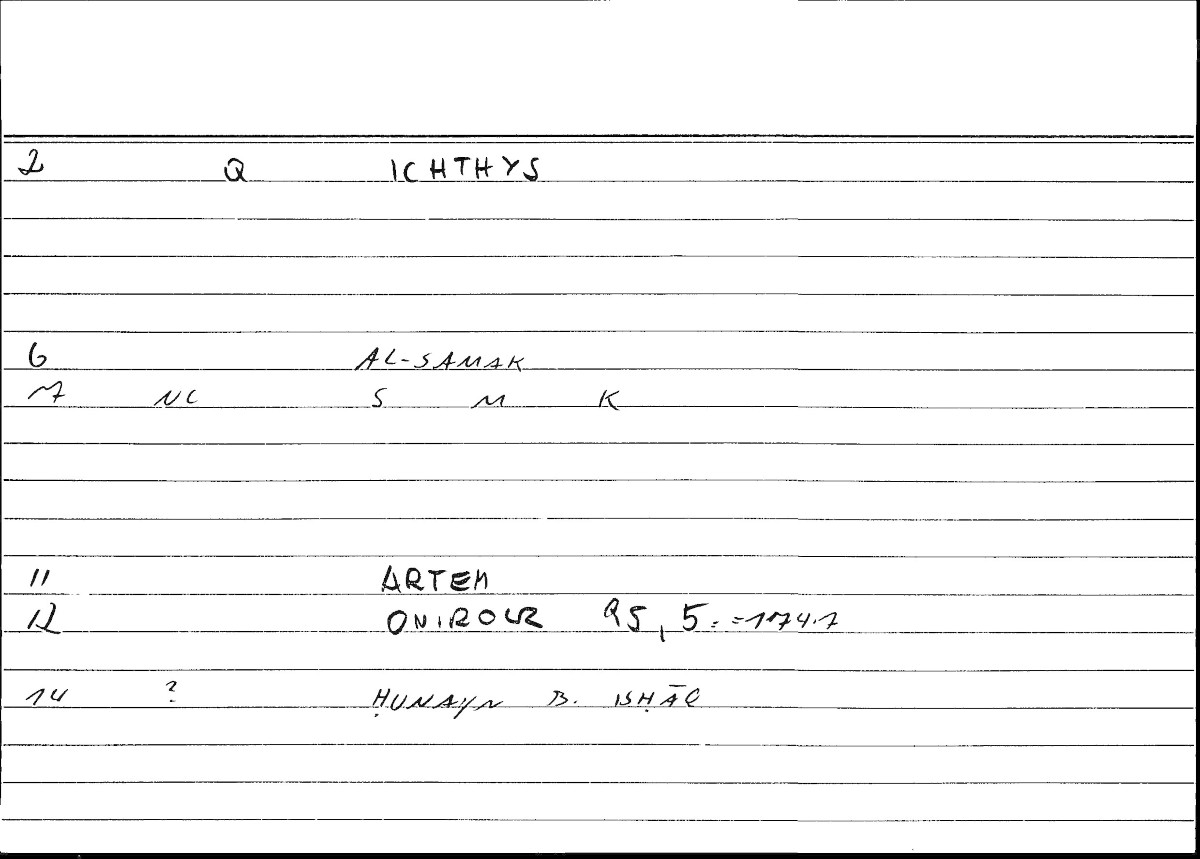 2 Q ICHTHYS
6 AL-SAMAK
7 NC S M K
11 ARTEM
12 ONIROCR 95, 5: =174.7
14 ? ḤUNAYN B. ISḤĀQ